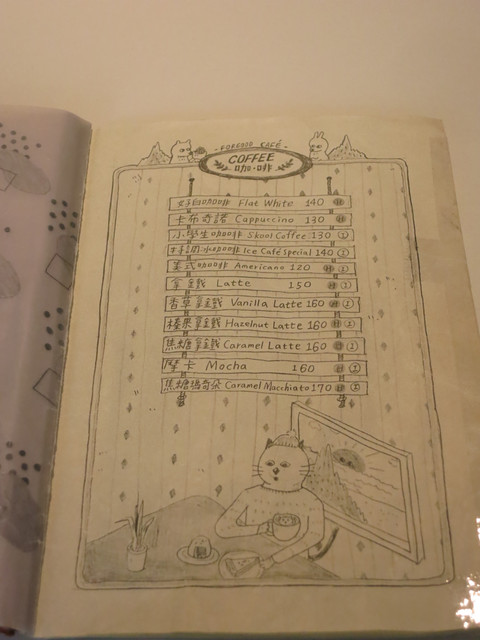 COFFEE
咖·啡
好白咖啡 Flat White 140 熱
卡布奇諾 Cappuccino 130 熱
小學生咖啡 Skool Coffee 130 冰
冰咖啡 Ice Café Special 140 冰
美式咖啡 Americano 120 熱 冰
拿金鐵 Latte 150 熱 冰
香草拿金鐵 Vanilla Latte 160 熱 冰
榛果拿金鐵 Hazelnut Latte 160 熱 冰
焦糖拿金鐵 Caramel Latte 160 熱 冰
摩卡 Mocha 160 熱 冰
焦糖瑪奇朵 Caramel Macchiato 170 熱 冰